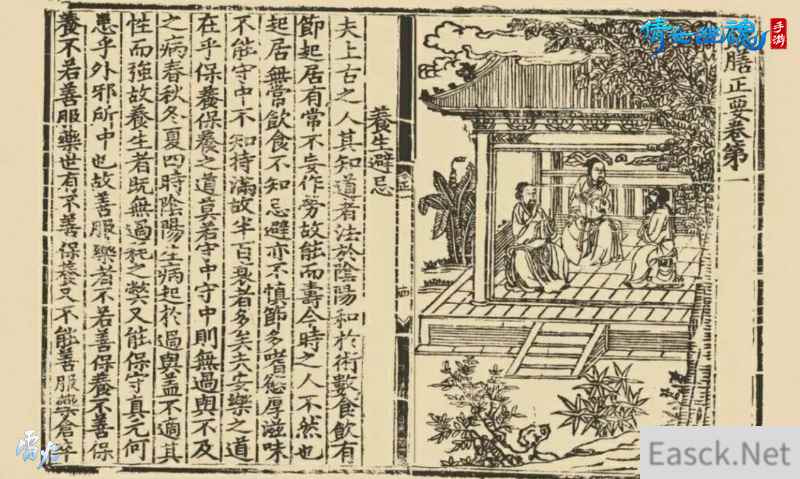 倩女幽魂
手游
膳正要卷第一
養生避忌
夫上古之人其知道者法於陰陽和於術數食飲有
節起居有常不妄作勞故能而壽今時之人不然也
起居無常飲食不知忌避亦不慎節多嗜慾厚滋味
不能守中不知持滿故半百衰者多矣夫安樂之道
在乎保養保養之道莫若守中守中則無過與不及
之病春秋冬夏四時陰陽生病起於過與蓋不適其
性而強故養生者既無過耗之弊又能保守真元何
患乎外邪所中也故善服藥者不若善保養不善保
養不若善服藥世有不善保養又不能善服藥倉卒
Easck.Net